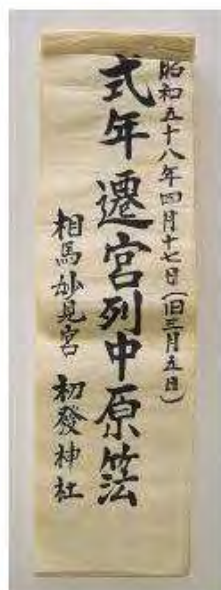 昭和五十八年四月十七日(旧三月五日)
式年遷宮列中原簿
相馬妙見宮 初發神社